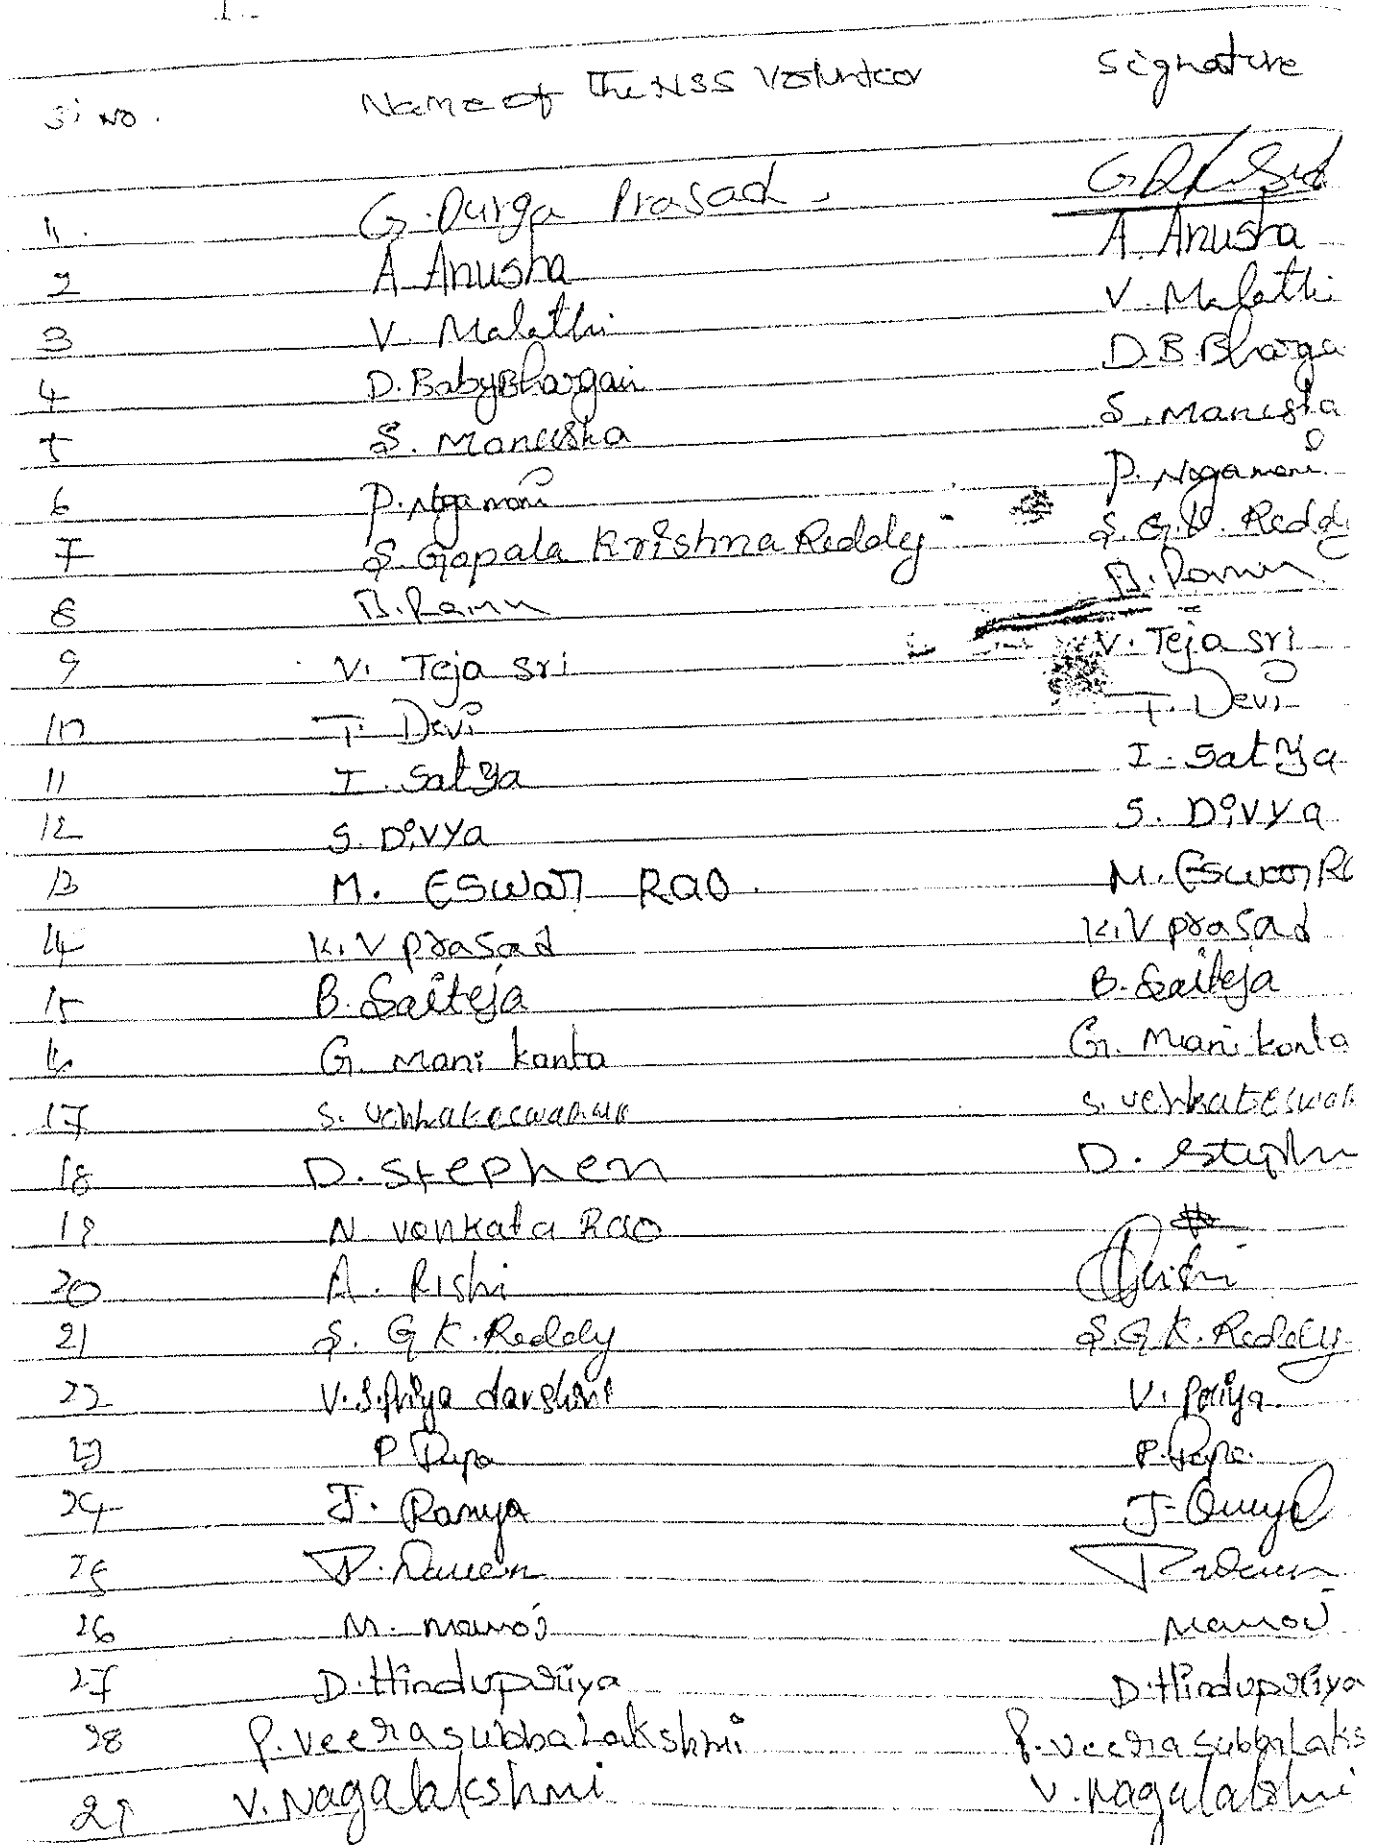 Si No. Name of the NSS Volunteer Signature
1. G. Durga Prasad
2 A Anusha A. Anusha
3 V. Malathi V. Malathi
4 D. Baby Bhargavi D.B. Bharga
5 S. Manisha S. Manisha
6 P. Nagamani P. Nagamani
7 S. Gopala Krishna Reddy S. G. K. Reddy
8 B. Ramu B. Ramu
9 V. Teja Sri V. Teja sri
10 T. Devi T. Devi
11 I. Satya I. Satya
12 S. Divya S. Divya
13 M. Eswar Rao. M. Eswar Ra
14 K. V prasad K. V prasad
15 B. Saiteja B. Saiteja
16 G. Mani kanta G. Mani kanta
17 S. Venkateswarlu S. Venkateswar
18 D. Stephen D. Stephen
19 N. Venkata Rao
20 A. Rishi Rishi
21 S. G K. Reddy S. G K. Reddy
22 V. S. Priya darshini V. Priya.
23 P Rupa P. Rupa.
24 J. Ramya J. Ramya
25
26 M. Manoj Manoj
27 D. Hindupriya D. Hindupriya
28 P. Veera subba Lakshmi P. Veera Subba Laks
29 V. Nagalakshmi V. Nagalakshmi